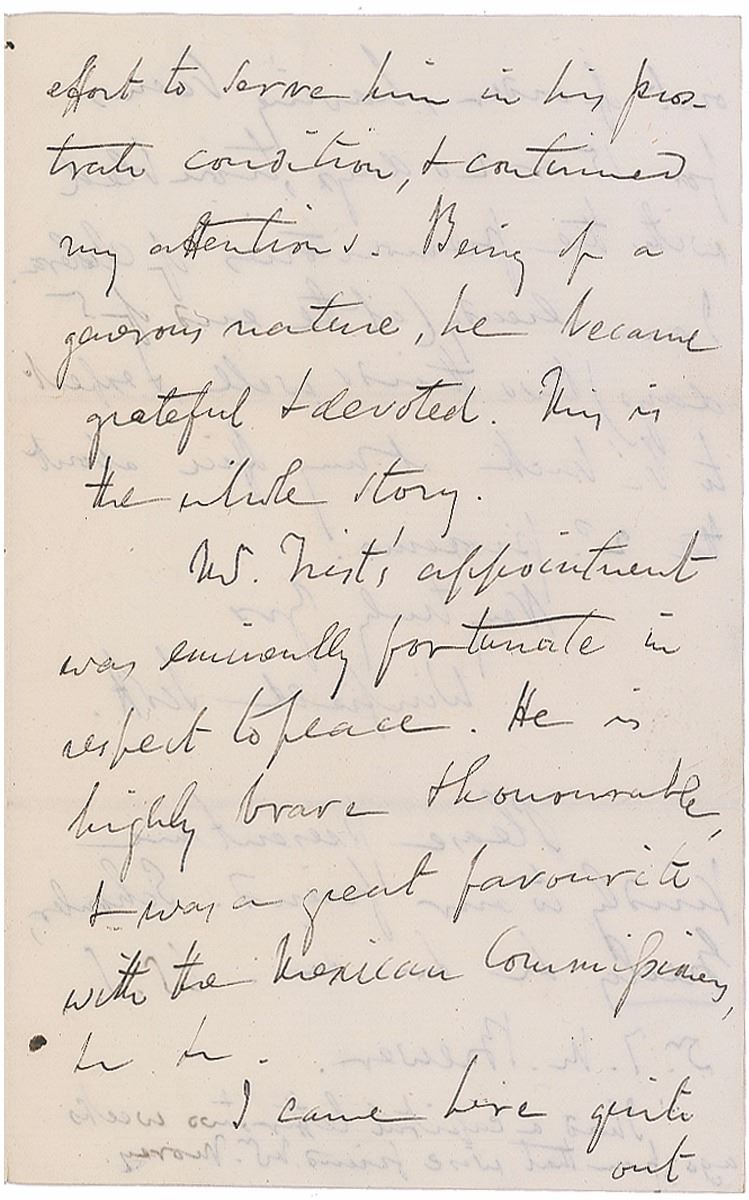 effort to serve him in his pros-
trate condition, & continued
my attentions. Being of a
generous nature, he became
grateful & devoted. This is
the whole story.
Mr. Trist's appointment
was eminently fortunate in
respect to peace. He is
highly brave & honourable,
& was a great favourite
with the Mexican Commissioners,
&c &c.
I came here quite
out